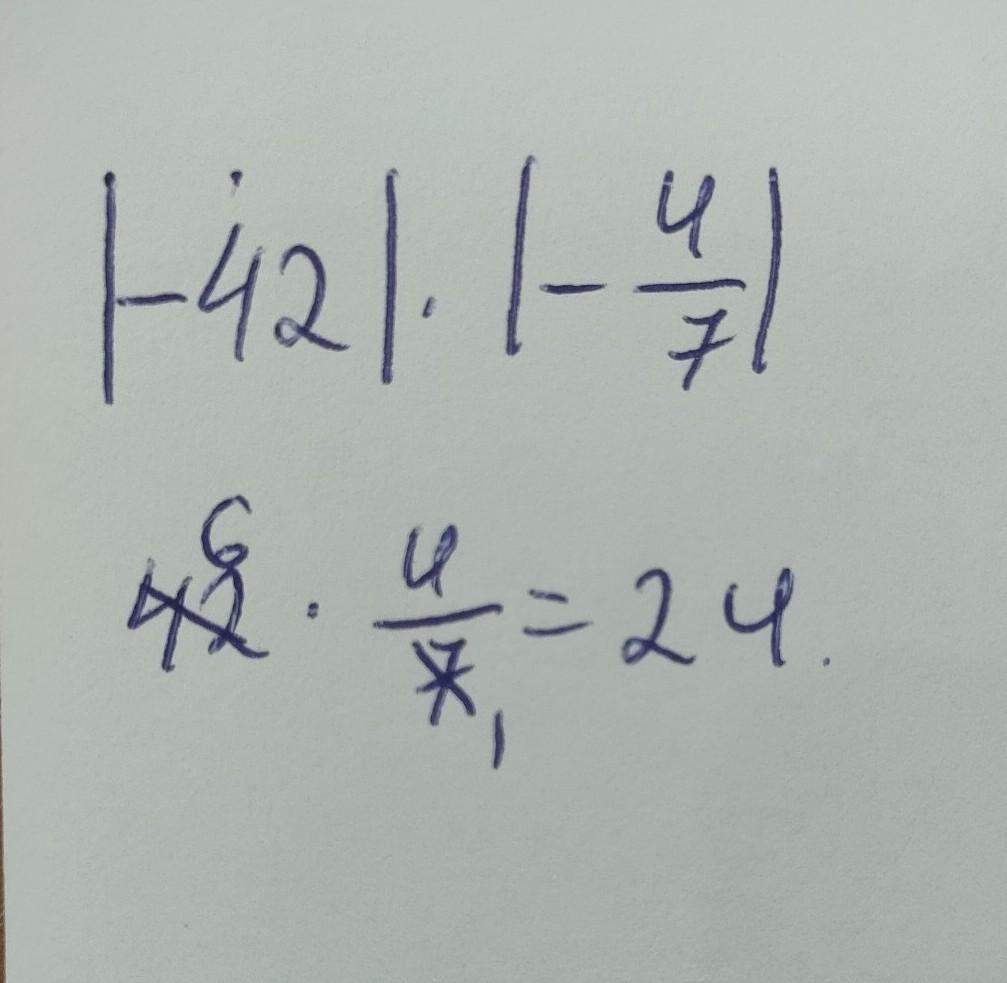 |-42| · |-4/7|
42 6 · 4/7 1 = 24.